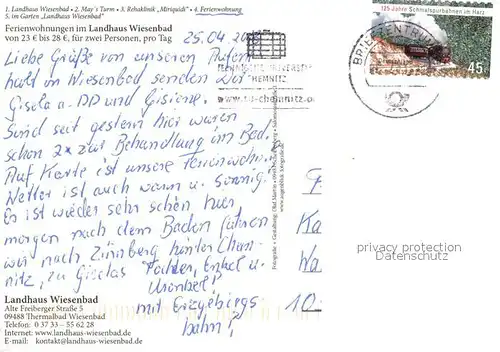 1. Landhaus Wiesenbad • 2. May's Turm • 3. Rehaklinik „Miriquidi" • 4. Ferienwohnung
5. im Garten „Landhaus Wiesenbad"
Ferienwohnungen im Landhaus Wiesenbad
von 23 € bis 28 €, für zwei Personen, pro Tag
25.04.20
Liebe Grüße von unseren Aufent
halt in Wiesenbad senden Dir
Gisela a. DD und Gisiene.
Sind seit gestern hier waren
schon 2x zur Behandlung im Bad.
Auf Karte ist unsere Ferienwohn.
Wetter ist auch warm u. sonnig.
Es ist wieder sehr schön hier
morgen nach dem Baden fahren
wir nach hinter Chem-
nitz, zu Giselas Tochter, Enkel u.
Urenkel!
mit Erzgebirgs
bahn!
Landhaus Wiesenbad
Alte Freiberger Straße 5
09488 Thermalbad Wiesenbad
Telefon: 0 37 33 – 55 62 28
Internet: www.landhaus-wiesenbad.de
E-mail: kontakt@landhaus-wiesenbad.de
TECHNISCHE UNIVERSITÄT
CHEMNITZ
www.tu-chemnitz.de
BRIEFZENTRUM
125 Jahre Schmalspurbahnen im Harz
45
privacy protection
Datenschutz